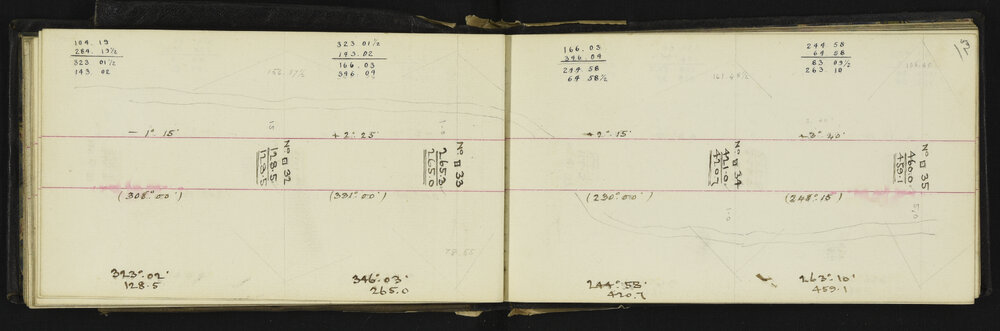 104. 19
284. 19½
323 01½
143. 02
323 01½
143. 02
166. 03
346 04
152. 17½
- 1° 15'
+ 2° 25'
No 32
128.5
128.5
No 33
265.3
265.0
(308° 00')
(331° 00')
78. 55
323° 02'
128.5
346° 03'
265.0
52
166. 03
346 04
244. 58
64 58½
244 58
64 58
83 09½
263. 10
161. 48½
+ 2° 15'
+ 3° 20'
No 34
421.0
420.7
No 35
460.0
459.1
(230° 00')
(248° 15')
244° 58'
420.7
263° 10'
459.1